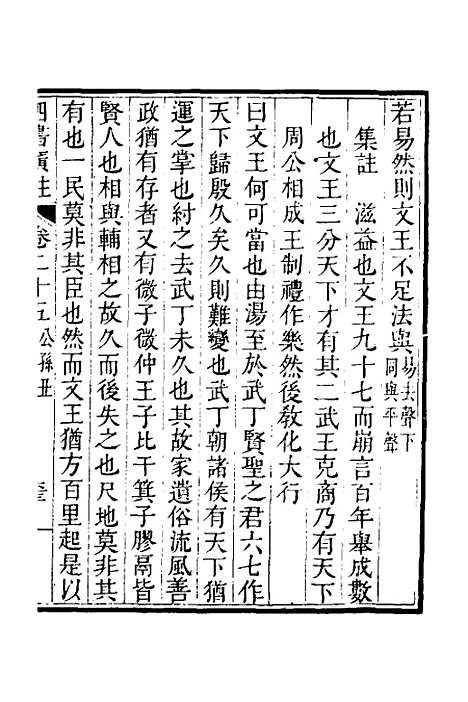 若易然則文王不足法與易去聲下同與平聲
集註　滋益也文王九十七而崩言百年舉成數
也文王三分天下才有其二武王克商乃有天下
周公相成王制禮作樂然後敎化大行
曰文王何可當也由湯至於武丁賢聖之君六七作
天下歸殷久矣久則難變也武丁朝諸侯有天下猶
運之掌也紂之去武丁未久也其故家遺俗流風善
政猶有存者又有微子微仲王子比干箕子膠鬲皆
賢人也相與輔相之故久而後失之也尺地莫非其
有也一民莫非其臣也然而文王猶方百里起是以
四書廣註　卷二十五公孫丑